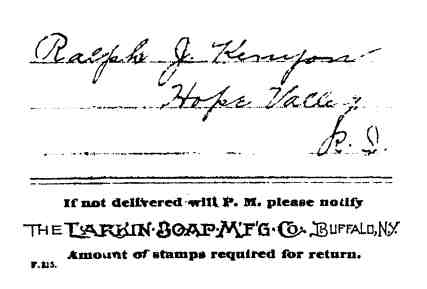 Ralph J. Kenyon
Hope Valley
R. I.
If not delivered will P. M. please notify
THE LARKIN SOAP M'F'G. Co. BUFFALO, N.Y.
Amount of stamps required for return.
F. 215.